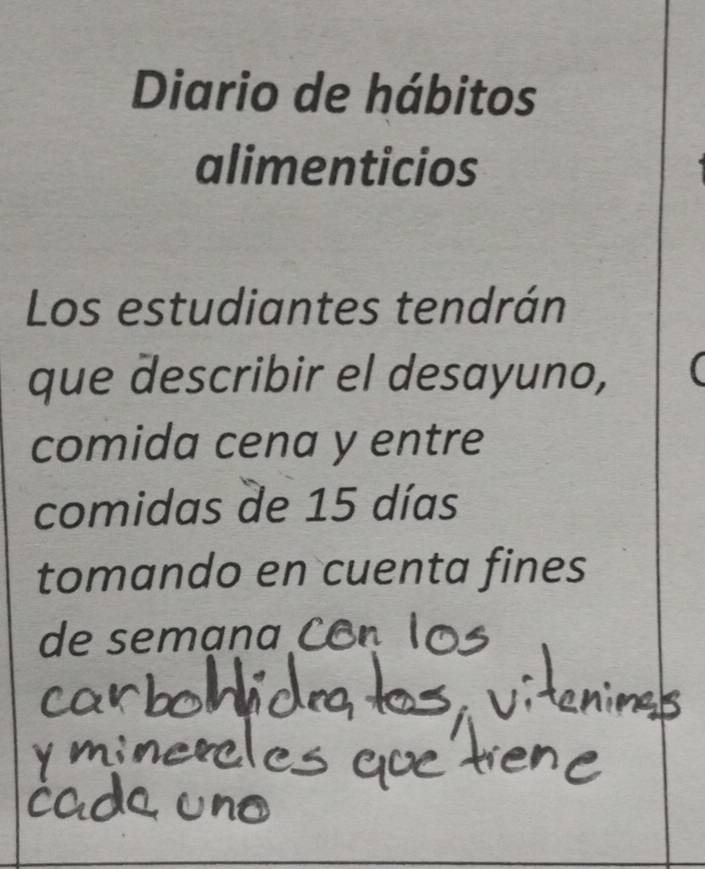 Diario de hábitos
alimenticios
Los estudiantes tendrán
que describir el desayuno,
comida cena y entre
comidas de 15 días
tomando en cuenta fines
de semana con los
carbohidratos, vitaminas
y minerales que tiene
cada uno